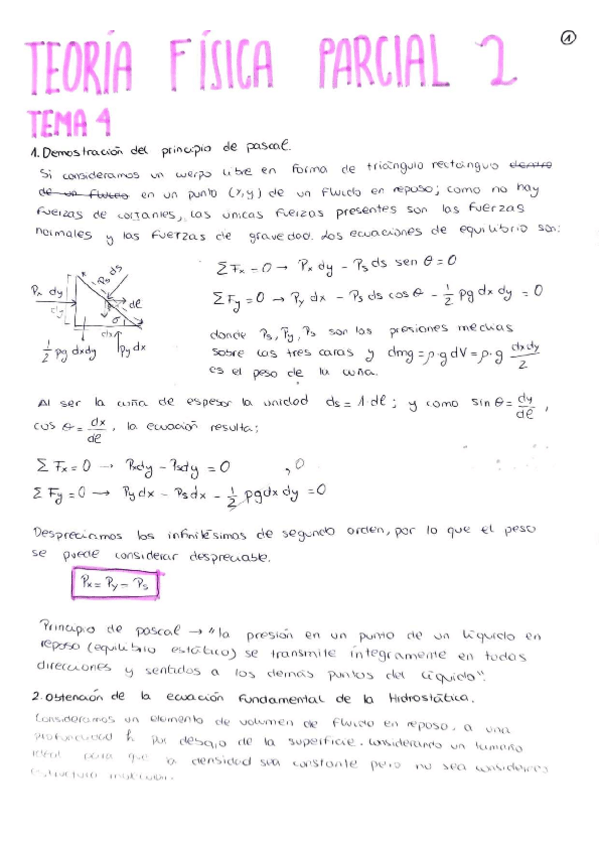 1
TEORÍA FÍSICA PARCIAL 2
TEMA 4
1. Demostración del principio de pascal.
Si consideramos un cuerpo libre en forma de triángulo rectángulo dentro
de un fluido en un punto (x,y) de un fluido en reposo; como no hay
fuerzas de cortantes, las únicas fuerzas presentes son las fuerzas
normales y las fuerzas de gravedad. Los ecuaciones de equilibrio son:
ΣFx = 0 → Px dy - Ps ds sen θ = 0
ΣFy = 0 → Py dx - Ps ds cos θ - 1/2 ρg dx dy = 0
Px dy
dy
Ps ds
dl
θ
dx
1/2 ρg dxdy
Py dx
donde Ps, Py, Ps son las presiones medias
sobre las tres caras y dmg = ρ·g dV = ρ·g dxdy/2
es el peso de la cuña.
Al ser la cuña de espesor la unidad ds = 1·dl; y como sin θ = dy/dl,
cos θ = dx/dl, la ecuación resulta;
ΣFx = 0 → Pxdy - Psdy = 0
ΣFy = 0 → Pydx - Psdx - 1/2 ρgdxdy = 0
0
Despreciamos los infinitésimos de segundo orden, por lo que el peso
se puede considerar despreciable.
Px = Py = Ps
Principio de pascal → "la presión en un punto de un líquido en
reposo (equilibrio estático) se transmite íntegramente en todas
direcciones y sentidos a los demás puntos del líquido".
2. Obtención de la ecuación fundamental de la Hidrostática.
Consideramos un elemento de volumen de fluido en reposo, a una
profundidad h por debajo de la superficie. Considerando un tamaño
ideal para que la densidad sea constante pero no sea
estructura molecular.